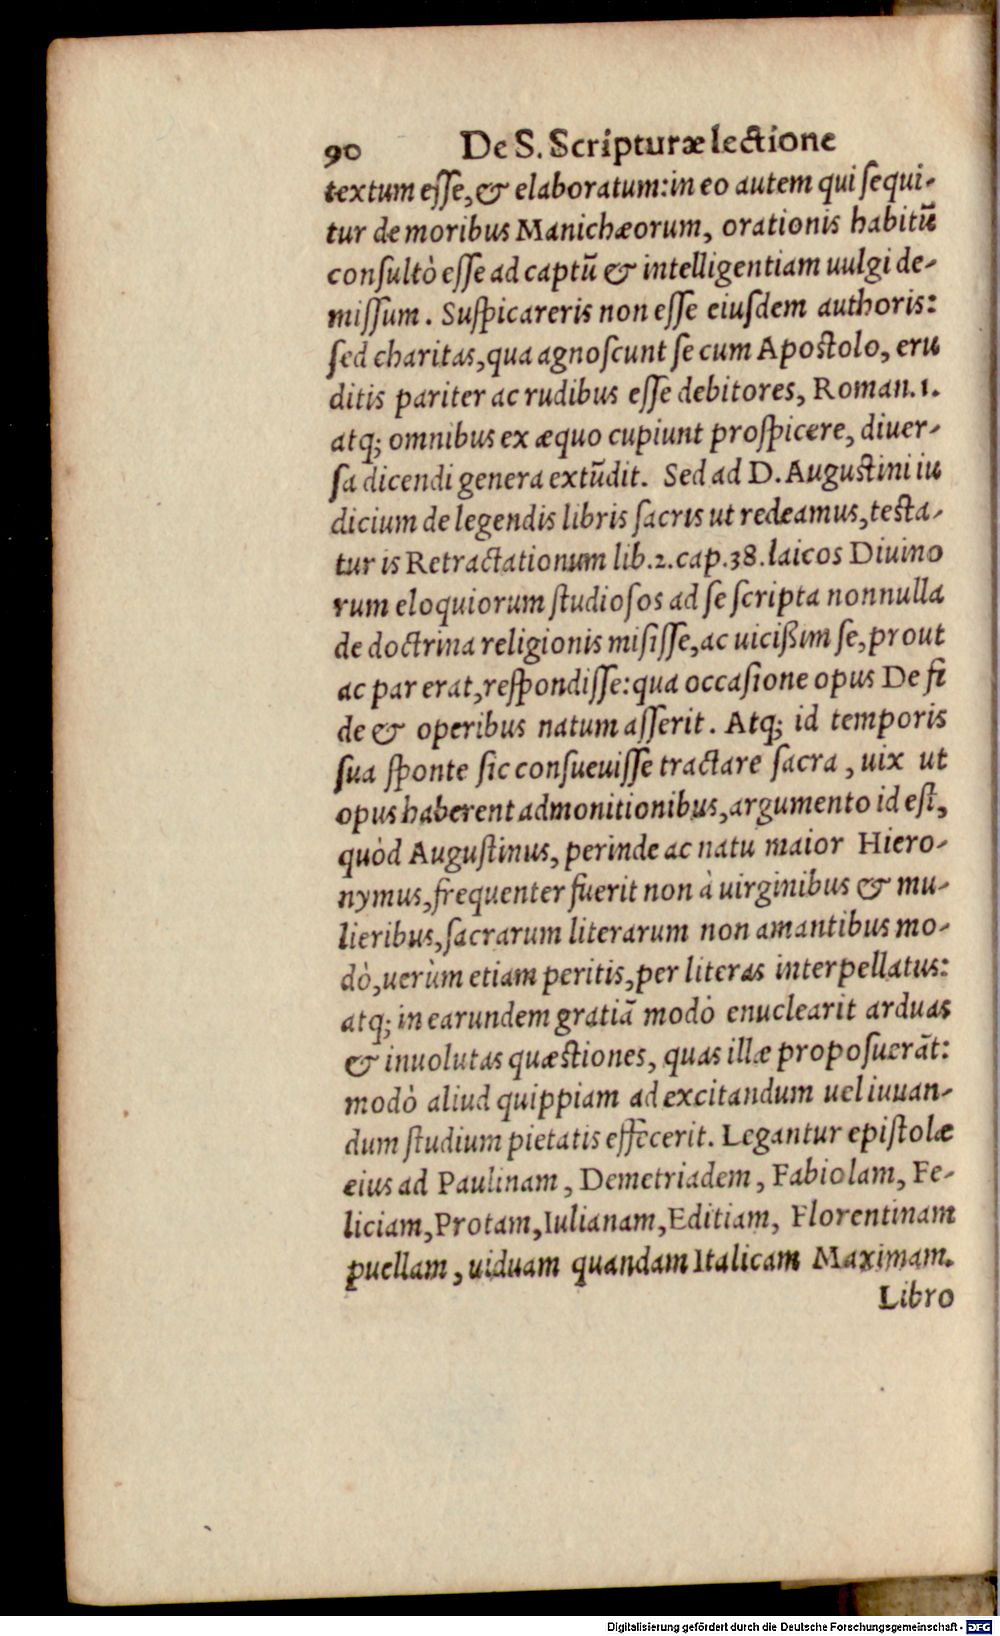 90 De S. Scripturæ lectione
textum eſſe, & elaboratum: in eo autem qui ſequi-
tur de moribus Manichæorum, orationis habitū
conſultò eſſe ad captū & intelligentiam uulgi de-
miſſum. Suſpicareris non eſſe eiuſdem authoris:
ſed charitas, qua agnoſcunt ſe cum Apoſtolo, eru
ditis pariter ac rudibus eſſe debitores, Roman. 1.
atq; omnibus ex æquo cupiunt proſpicere, diuer-
ſa dicendi genera extūdit. Sed ad D. Auguſtini iu
dicium de legendis libris ſacris ut redeamus, teſta-
tur is Retractationum lib. 2. cap. 38. laicos Diuino
rum eloquiorum ſtudioſos ad ſe ſcripta nonnulla
de doctrina religionis miſiſſe, ac uicißim ſe, prout
ac par erat, reſpondiſſe: qua occaſione opus De fi
de & operibus natum aſſerit. Atq; id temporis
ſua ſponte ſic conſueuiſſe tractare ſacra, uix ut
opus haberent admonitionibus, argumento id eſt,
quòd Auguſtinus, perinde ac natu maior Hiero-
nymus, frequenter fuerit non à uirginibus & mu-
lieribus, ſacrarum literarum non amantibus mo-
dò, uerùm etiam peritis, per literas interpellatus:
atq; in earundem gratiā modò enuclearit arduas
& inuolutas quæſtiones, quas illæ propoſuerāt:
modò aliud quippiam ad excitandum uel iuuan-
dum ſtudium pietatis effecerit. Legantur epiſtolæ
eius ad Paulinam, Demetriadem, Fabiolam, Fe-
liciam, Protam, Iulianam, Editiam, Florentinam
puellam, uiduam quandam Italicam Maximam.
Libro
Digitalisierung gefördert durch die Deutsche Forschungsgemeinschaft - DFG